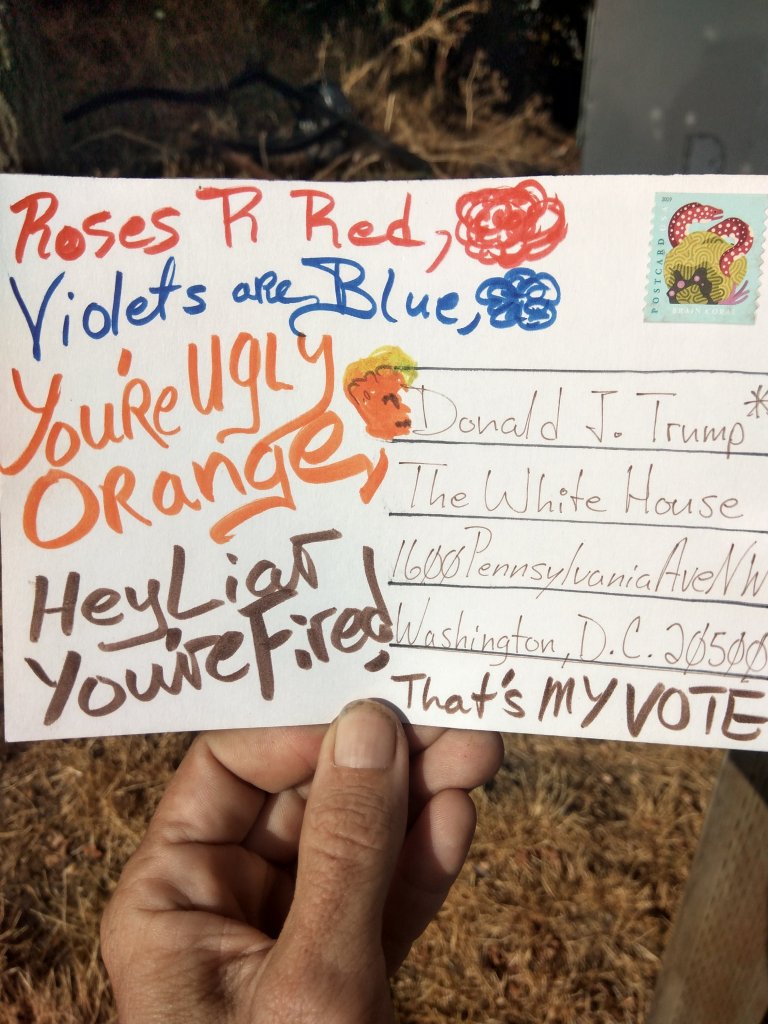 Roses R Red,
Violets are Blue,
You're UGLY
ORange,
Hey Liar
You're Fired!
2019
POSTCARD
BRAIN CORAL
Donald J. Trump*
The White House
1600 Pennsylvania Ave NW
Washington, D.C. 20500
That's MY VOTE